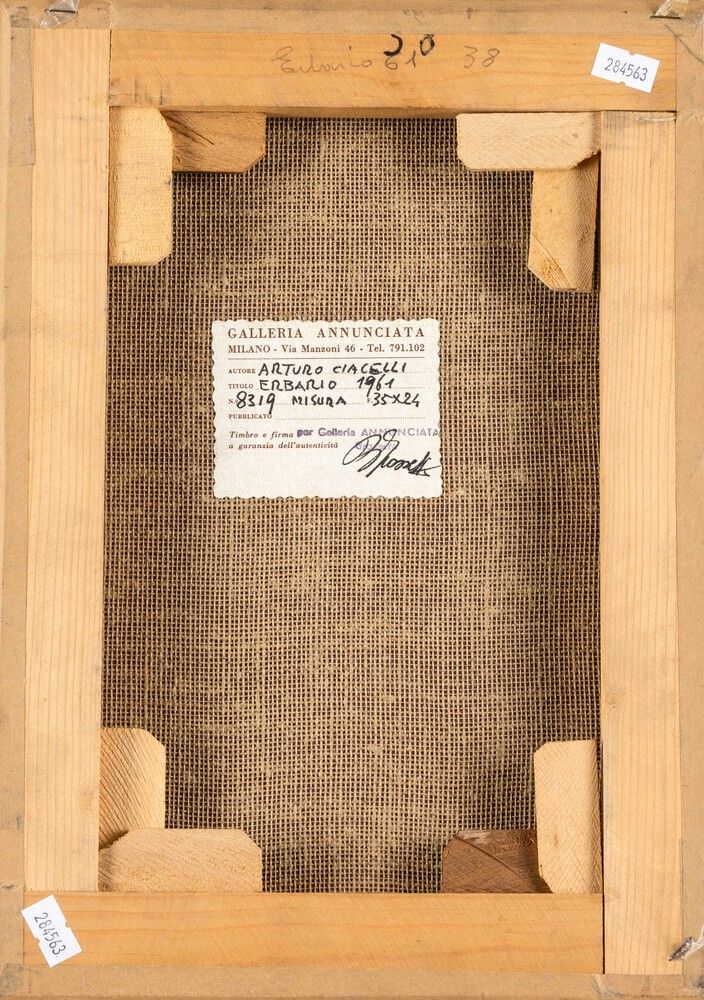 Erbario 61 38
20
284563
GALLERIA ANNUNCIATA
MILANO - Via Manzoni 46 - Tel. 791.102
AUTORE ARTURO CIACELLI
TITOLO ERBARIO 1961
N. 8319 MISURA F. 35X24
PUBBLICATO
Timbro e firma per Galleria ANNUNCIATA
a garanzia dell'autenticità
284563